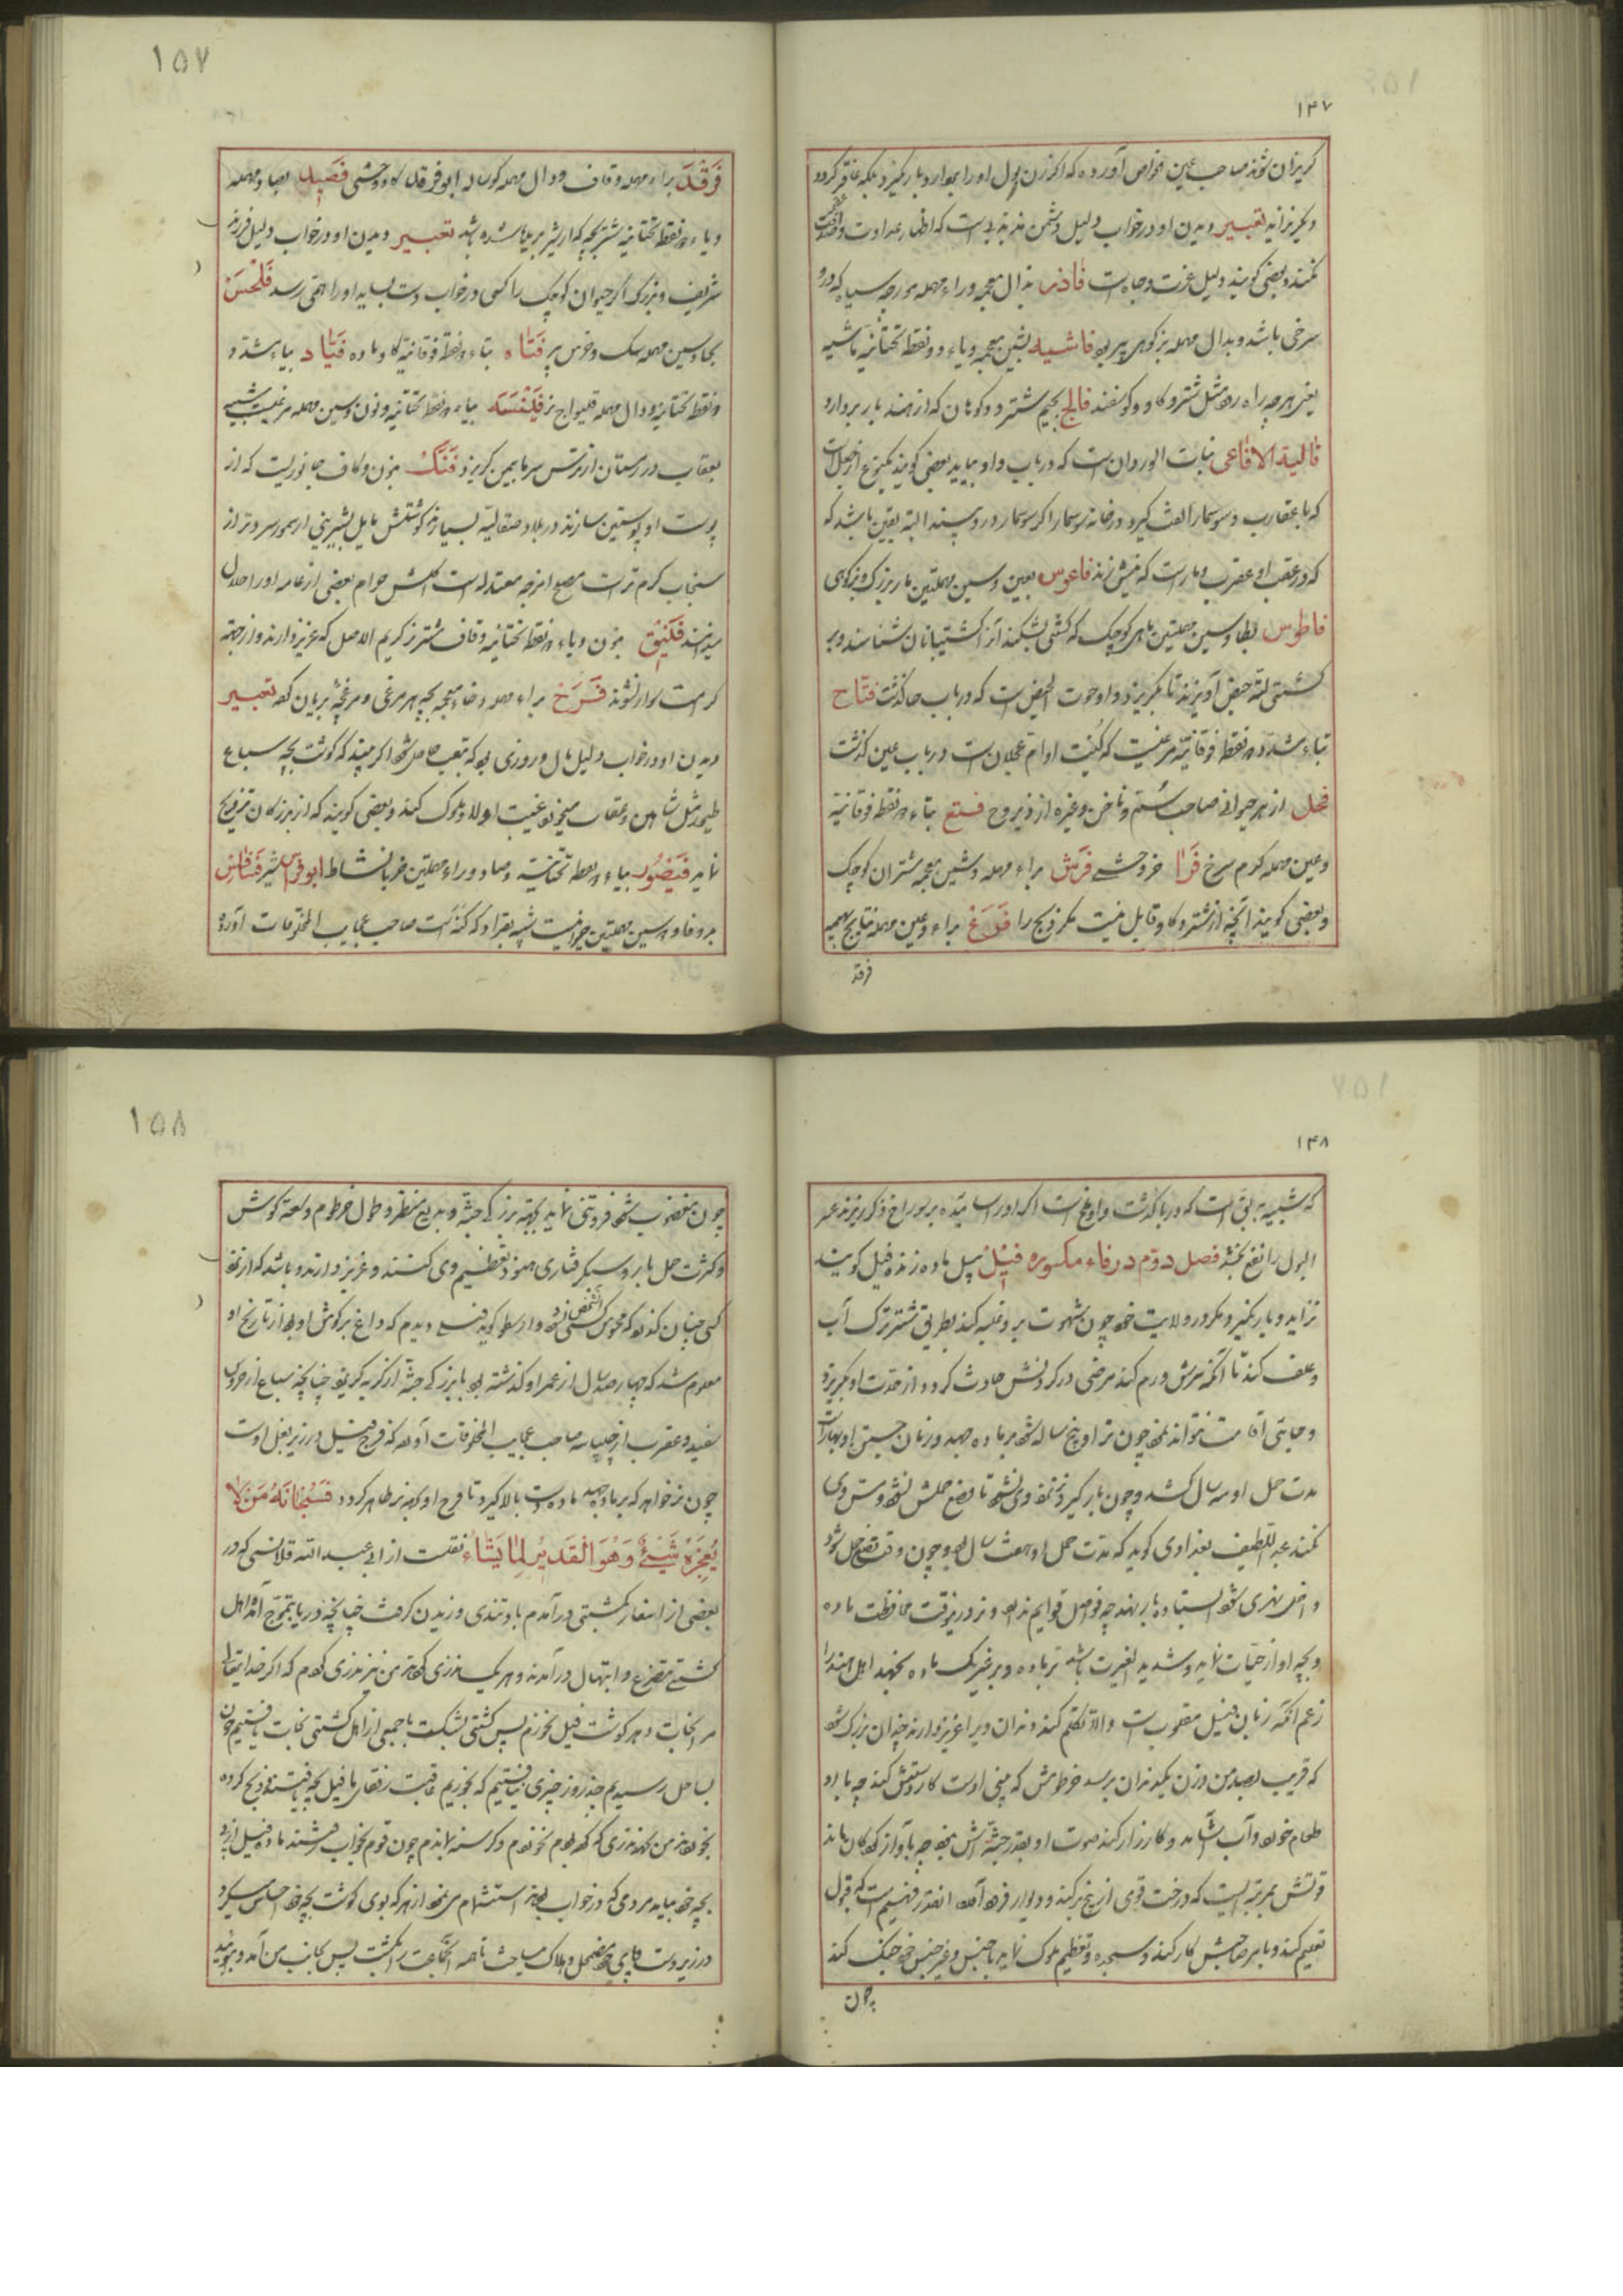 ۱۴۷
کریزان شوند صاحب عین خواص آورده که اکر زن بول اورا بموارد بار نکیرد بلکه عاقر کردد
و بکریزانید تعبیر دیدن او در خواب دلیل دشمن است که اظهار عداوت
کنند و بعضی کویند دلیل عزت و جاه است فاذر بذال معجمه و راء مهمله مورچه سیاه که درو
سرخی باشد و بدال مهمله بز کوهی پیر بود فاشیه بشین معجمه و یاء دو نقطه تحتانیه ماشیه
یعنی هرچه راه رود مثل شتر و کاو و کوسفند فالج بجیم شتر دو کوهان که از هند بار بردارد
فالیة الافاعی بنات الوردان است که در باب واو بیاید بعضی کویند
که با عقارب و سوسمار الفت کیرد در خانه سوسمار اکر سوسمار درو بسیند البته یقین باشد که
که در عقب او عقرب و مار است که نیش زند فاعوس بعین و سین مهملتین مار بزرک و بز کوهی
فاطوس بطا و سین مهملتین ماهی کوچک که کشتی بشکند انرا کشتیبانان شناسند و بر
کشتی لته حیض آویزند تا بکریزد و او حوت الحیض است که در باب حا کذشت فتاح
بتاء مشدده دو نقطه فوقانیه مرغیست که کنیت او ام عجلان است در باب عین کذشت
فحل از هر حیوانی صاحب سم و ناخن و غیره از ذیروح فستع بتاء دو نقطه فوقانیه
و عین مهمله کرم سرخ فرا خر وحشی فرش براء مهمله و شین معجمه شتران کوچک
و بعضی کویند آنچه از شتر و کاو قابل نیست مکر ذبح را فرع براء و عین مهمله نتایج بهیمه
فرقد
۱۵۷
فرقد براء مهمله و قاف و دال مهمله کوساله ابو فرقد کاو وحشی فصیل بصاد مهمله
و یاء دو نقطه تحتانیه شتر بچه که از شیر بریده شده باشد تعبیر دیدن او در خواب دلیل فرزند
شریف و بزرک اکر حیوان کوچک را کسی در خواب دست بساید اورا همی رسد فلحس
بحا و سین مهمله سک و خرس پیر فتاه بتاء دو نقطه فوقانیه کاو ماده فیاد بیاء مشدده
دو نقطه تحتانیه و دال مهمله قلیواج نر فینسه بیاء دو نقطه تحتانیه و نون و سین مهمله مرغیست شبیه
بعقاب در زمستان از ترس سرما بیمن کریزد فنک بنون و کاف جانوریست که از
پوست او پوستین سازند در بلاد صقالیه بسیار بود کوشتش مایل بشیرینی از سمور سردتر از
سنجاب کرم تر است مصلح امزجه معتدله است اکلش حرام بعضی از عامه اورا حلال
میدانند فنیق بنون و یاء دو نقطه تحتانیه و قاف شتر نر کریم الاصل که عزیز دارند و از جهة
کرامت سوار نشوند فرخ براء مهمله و خاء معجمه بچه هر مرغی و مرغچه بریان کرده تعبیر
دیدن او در خواب دلیل مال و روزی بود که بتعب حاصل شود اکر بیند که کوشت بچه سباع
طیور مثل شاهین و عقاب میخورد غیبت اولاد ملوک کند و بعضی کویند که از بزرکان تزویج
نماید فیصور بیاء دو نقطه تحتانیه و صاد و راء مهملتین خر با نشاط ابو فراس شیر فسافس
بدو فا و دو سین مهملتین جانوریست شبیه بقراد که کنه است صاحب عجایب المخلوقات آورده
۱۴۸
که شبیه به بق است که در با کذشت و او اخ است اکر اورا ساییده بر سوراخ ذکر ریزند عسر
البول را نفع بخشد فصل دوم در فاء مکسوره فیل پیل ماده زنده فیل کویند
نزاید و بار نکیرد مکر در ولایت خود چون شهوت برو غلبه کند بطریق شتر ترک آب
و علف کند تا آنکه سرش ورم کند مرضی در کردنش حادث کردد از حدت او بکریزد
و جایی اقامت نتواند نمود چون نر او پنج ساله شود بر ماده جهد و زمان جستن او بهار است
مدت حمل او سه سال کشد و چون بار کیرد نر نزد وی نشود تا وضع حملش نشود و مس وی
نکند عبداللطیف بغدادی کوید که مدت حمل او هفت سال بود و چون وقت وضع حمل شود
داخل نهری شود ایستاده بار بنهد چه فواصل قوایم ندارد و نر در ینوقت محافظت ماده
و بچه او از حیات نماید و شدید الغیرت باشد نر ماده و بر غیر یک ماده نجهد اهل هند را
زعم انکه زبان فیل مقلوب است و الا تکلم کند دندان ویرا عزیز دارند چندان بزرک شود
که قریب بصد من وزن یکدندان برسد خرطومش که بینی اوست کار دستش کند چه با او
طعام خورد و آب آشامد و کارزار کند صوت او بقدر جثه اش نبود چه باواز کودکان ماند
قوتش بمرتبه ایست که درخت قوی از بیخ برکند و دیوار فرود آورد انقدر فهیم است که قبول
تعلیم کند و بامر صاحبش کار کند و سجده و تعظیم ملوک نماید با جنس و غیر جنس خود جنک کند
چون
۱۵۸
چون مغضوب شود فروتنی نماید بجهة بزرکی جثه و بدیع منظر و طول خرطوم و سعة کوش
و کثرت حمل بار و سبکرفتاری هنود تعظیم وی کنند و عزیز دارند و باشد که از نزد
کسی چنان کذرد که محسوس کسی نشود وارسطو کوید فیلی دیدم که داغ بر کوش او بود از تاریخ او
معلوم شد که چهارصد سال از عمر او کذشته بود با بزرکی جثه از کربه کریزد چنانچه سباع از خروس
سفید و عقرب از چلپاسه صاحب عجایب المخلوقات آورده که فرج فیل در زیر بغل اوست
چون نر خواهد که بر ماده جهد ماده دست بالا کیرد تا فرج او بجهة نر ظاهر کردد فَسُبْحَانَهُ مَنْ لَا
یُعْجِزُهُ شَیْءٌ وَهُوَ الْقَدِیرُ لِمَا یَشَاءُ نقلست از ابی عبد الله قلانسی که در
بعضی از اسفار بکشتی درآمدم باد تندی وزیدن کرفت چنانچه دریا بتموج آمد اهل
کشتی بتضرع و ابتهال درآمدند و هر یک نذری کردند من نیز نذری کردم که اکر خدایتعالی
مرا نجات دهد کوشت فیل نخورم پس کشتی بشکست با جمعی از اهل کشتی نجات یافتیم چون
بساحل رسیدیم چند روز چیزی نیافتیم که بخوریم عاقبت رفقای ما فیل بچه یافتند و ذبح کرده
بخوردند من بجهة نذری که کرده بودم نخوردم و کرسنه ماندم چون قوم بخواب رفتند ماده فیل از پی
بچه خود بیامد مردمی که در خواب بودند استشمام می نمود از هر که بوی کوشت بچه خود احساس میکرد
در زیر دست و پای خود مضمحل و هلاک میساخت تا همه انجماعت را بکشت پس بجانب من آمد و ببوئید